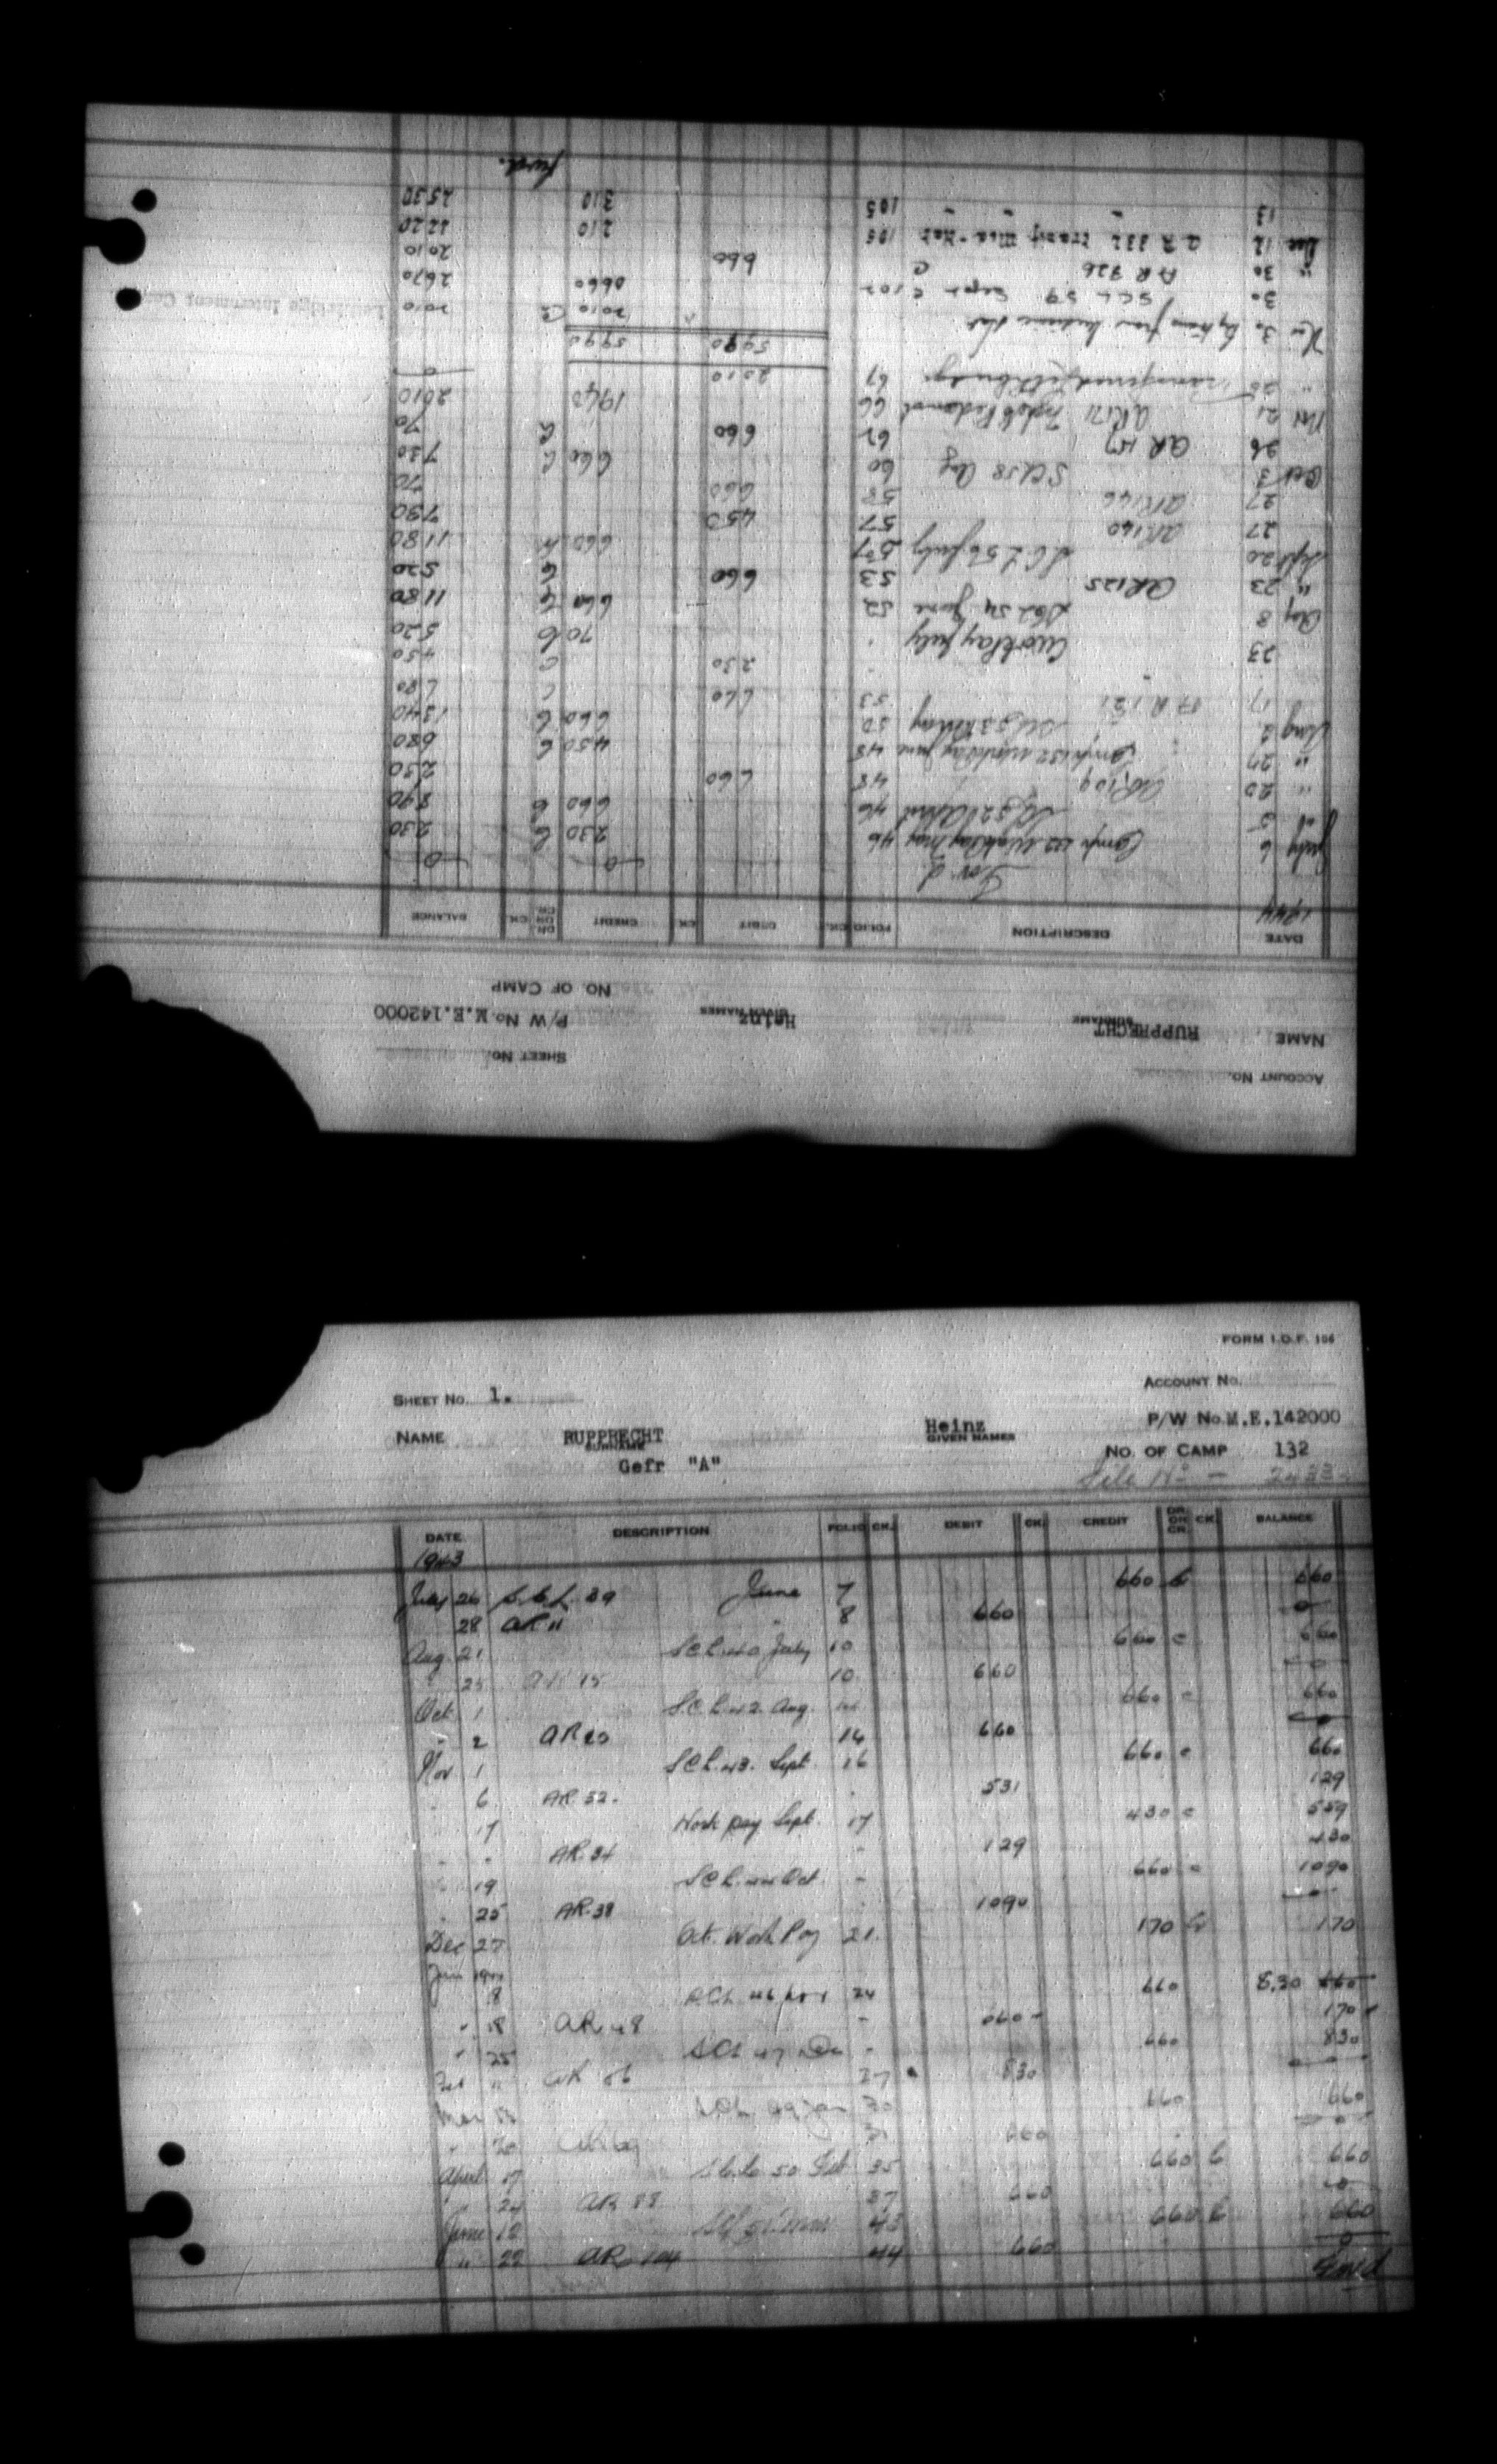 FORM I.O.F. 106
SHEET NO. 1. ACCOUNT NO.
NAME RUPPRECHT Heinz P/W NO. M.E.142000
SURNAME GIVEN NAMES
Gefr "A" NO. OF CAMP 132
File No -
DATE DESCRIPTION FOLIO CK. DEBIT CK. CREDIT DR. OR CR. CK. BALANCE
1943
July 26 S.C.L. 39 June 7 660 C 660
28 AR 11 8 660 0
Aug. 21 SCL 40 July 10 660 C 660
25 AR 15 10 660 0
Oct. 1 SCL 42 Aug. 14 660 C 660
" 2 AR 20 14 660 0
Nov 1 SCL 43. Sept. 16 660 C 660
6 AR. 32. 531 129
17 Work Pay Sept. 17 430 C 559
AR. 34 129 430
19 SCL 44 Oct. 660 C 1090
25 AR. 38 1090 0
Dec 27 Oct. Work Pay 21. 170 C 170
Jan 1944
8 SCL 46 Nov 24 660 8.30 660
" 18 AR 48 660 170
" 25 SCL 47 Dec 660 830
Feb " AR 56 27 830 0
Mar SCL 49 Jan 30 660 660
" AR 31 660 0
April 17 S.C.L. 50 Feb 35 660 C 660
24 AR 88 37 660 0
June 12 SCL 51 Mar 43 660 C 660
" 22 AR 104 44 660 0
Fwd
ACCOUNT NO. SHEET NO.
NAME RUPPRECHT Heinz P/W NO. M.E.142000
SURNAME GIVEN NAMES
NO. OF CAMP
DATE DESCRIPTION FOLIO CK. DEBIT CK. CREDIT DR. OR CR. CK. BALANCE
1944 For'd 0 0
July 6 Camp 132 Work Pay May 46 230 C 230
" 5 SCL 52 April 46 660 C 890
" 20 AR 109 48 660 230
" 27 Camp 132 Work Pay June 48 450 C 680
Aug 2 SCL 53 May 50 660 C 1340
17 AR 121 53 660 C 680
" 230 C 450
23 Work Pay July 70 C 520
Aug 8 SCL 54 June 52 660 C 1180
" 23 AR 125 53 660 C 520
Sept 20 SCL 56 July 57 660 C 1180
27 AR 140 57 450 730
27 AR 146 58 660 70
Oct 3 SCL 58 Aug 60 660 C 730
26 AR 157 62 660 C 70
Nov 21 AR 171 66 1940 2010
" 25 Transferred Lethbridge 67 2010 0
5990 5990
Nov 30 2010 Cr 2010
30 SCL 59 Sept C 102 0660 2670
" 30 AR 926 C 660 2010
Dec 12 AR 332 105 210 2220
13 " " " 105 310 2530
fwd.
Lethbridge Internment Camp